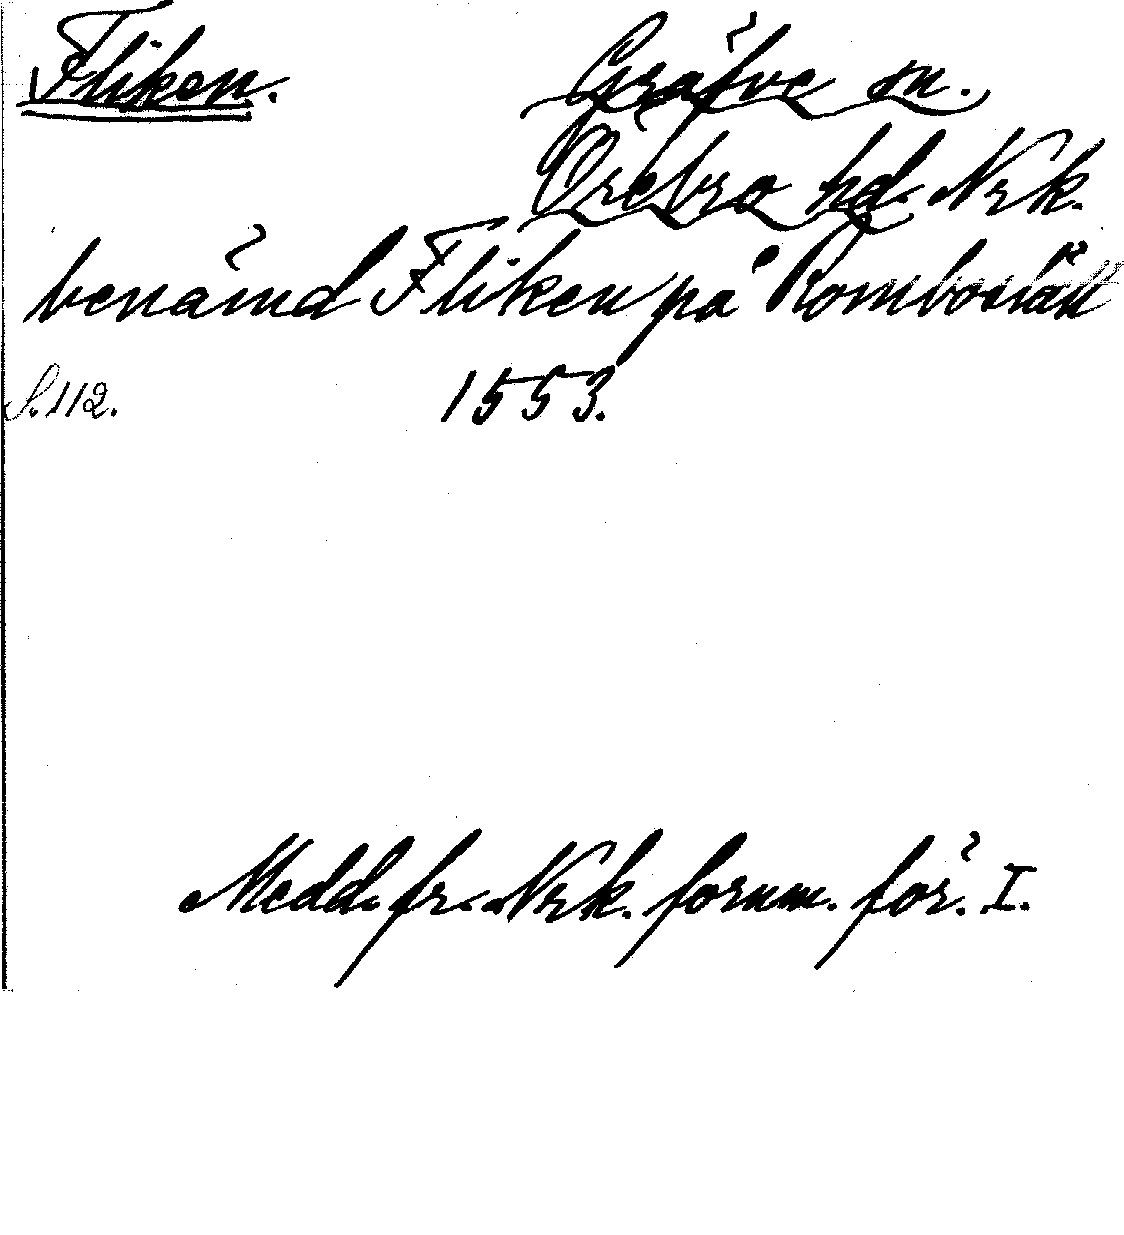 Fliken. Gräfve sn.
Örebro hd. Nrk.
benämd Fliken på
S. 112. 1553.
Medd. fr. Nrk. fornm. för. I.